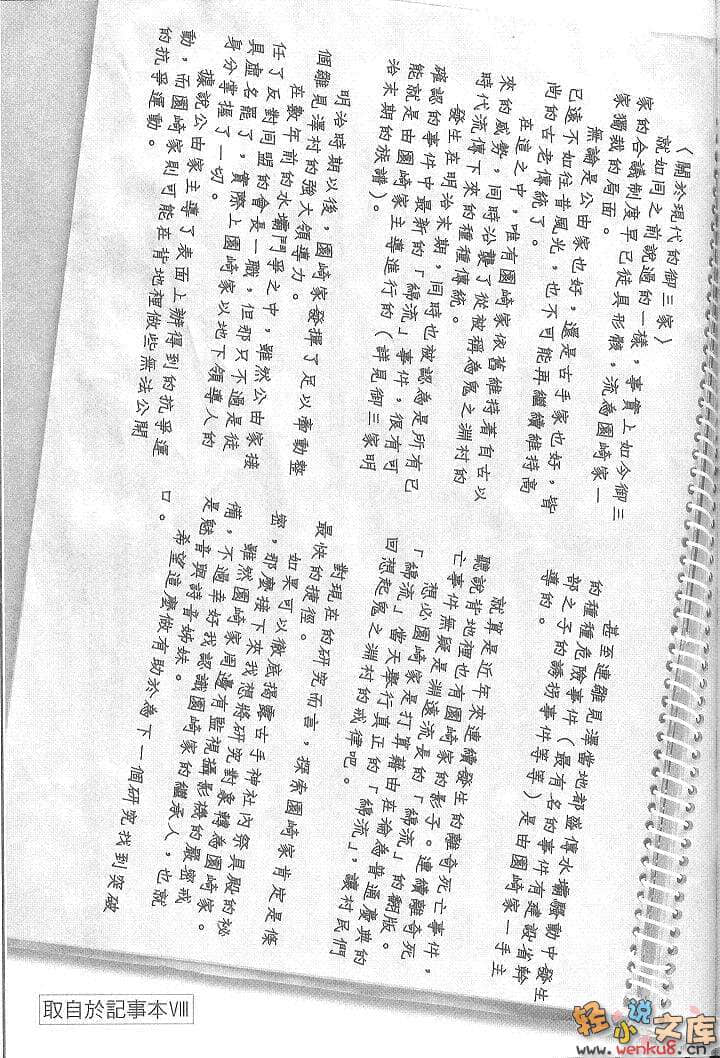 〈關於現代的御三家〉
就如同之前說過的一樣，事實上如今御三
家的合議制度早已徒具形骸，流為園崎家一
家獨裁的局面。
無論是公由家也好，還是古手家也好，皆
已遠不如往昔風光，也不可能再繼續維持高
尚的古老傳統了。
在這之中，唯有園崎家依舊維持着自古以
來的威勢，同時沿襲了從被稱為鬼之淵村的
時代流傳下來的種種傳統。
發生在明治末期，同時也被認為是所有已
確認的事件中最新的「綿流」事件，很有可
能就是由園崎家主導進行的（詳見御三家明
治末期的族譜）。
明治時期以後，園崎家發揮了足以牽動整
個雛見澤村的強大領導力。
在數年前的水壩鬥爭之中，雖然公由家接
任了反對同盟的會長一職，但那只不過是徒
具虛名罷了，實際上園崎家以地下領導人的
身分掌握了一切。
據說公由家主導了表面上辦得到的抗爭運
動，而園崎家則可能在背地裡做些無法公開
的抗爭運動。
甚至連雛見澤當地都盛傳水壩騷動中發生
的種種危險事件（最有名的事件有建設省幹
部之子的誘拐事件等等）是由園崎家一手主
導的。
就算是近年來連續發生的離奇死亡事件，
聽說背地裡也有園崎家的影子。連續離奇死
亡事件無疑是淵遠流長的「綿流」的翻版。
想必園崎家是打算藉由在淪為普通慶典的
「綿流」當天舉行真正的「綿流」，讓村民們
回想起鬼之淵村的戒律吧。
對現在的研究而言，探索園崎家肯定是條
最快的捷徑。
如果可以徹底揭露古手神社內祭具殿的祕
密，那麼接下來我想將研究對象轉為園崎家。
雖然園崎家周邊有監視攝影機的嚴密戒
備，不過幸好我認識園崎家的繼承人，也就
是魅音與詩音姊妹。
希望這麼做有助於為下一個研究找到突破
口。
取自於記事本Ⅷ
轻小说文库
www.wenku8.cn